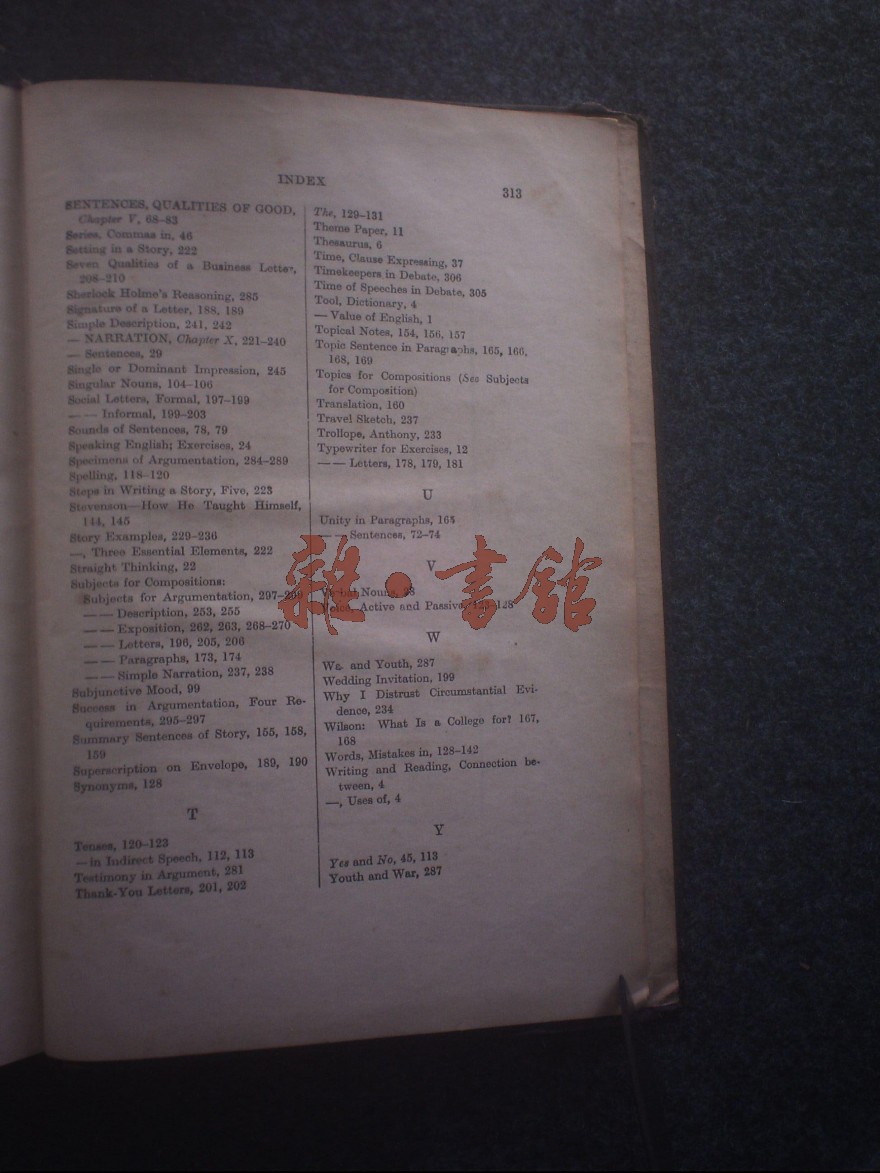 INDEX
313
SENTENCES, QUALITIES OF GOOD,
Chapter V, 68–83
Series, Commas in, 46
Setting in a Story, 222
Seven Qualities of a Business Letter,
208–210
Sherlock Holme's Reasoning, 285
Signature of a Letter, 188, 189
Simple Description, 241, 242
— NARRATION, Chapter X, 221–240
— Sentences, 29
Single or Dominant Impression, 245
Singular Nouns, 104–106
Social Letters, Formal, 197–199
— — Informal, 199–203
Sounds of Sentences, 78, 79
Speaking English; Exercises, 24
Specimens of Argumentation, 284–289
Spelling, 118–120
Steps in Writing a Story, Five, 223
Stevenson—How He Taught Himself,
144, 145
Story Examples, 229–236
—, Three Essential Elements, 222
Straight Thinking, 22
Subjects for Compositions:
Subjects for Argumentation, 297–299
— — Description, 253, 255
— — Exposition, 262, 263, 268–270
— — Letters, 196, 205, 206
— — Paragraphs, 173, 174
— — Simple Narration, 237, 238
Subjunctive Mood, 99
Success in Argumentation, Four Re-
quirements, 295–297
Summary Sentences of Story, 155, 158,
159
Superscription on Envelope, 189, 190
Synonyms, 128
T
Tenses, 120–123
— in Indirect Speech, 112, 113
Testimony in Argument, 281
Thank-You Letters, 201, 202
The, 129–131
Theme Paper, 11
Thesaurus, 6
Time, Clause Expressing, 37
Timekeepers in Debate, 306
Time of Speeches in Debate, 305
Tool, Dictionary, 4
— Value of English, 1
Topical Notes, 154, 156, 157
Topic Sentence in Paragraphs, 165, 166,
168, 169
Topics for Compositions (See Subjects
for Composition)
Translation, 160
Travel Sketch, 237
Trollope, Anthony, 233
Typewriter for Exercises, 12
— — Letters, 178, 179, 181
U
Unity in Paragraphs, 165
— — Sentences, 72–74
V
Verbal Nouns,
Voice, Active and Passive, 123–128
W
War and Youth, 287
Wedding Invitation, 199
Why I Distrust Circumstantial Evi-
dence, 234
Wilson: What Is a College for? 167,
168
Words, Mistakes in, 128–142
Writing and Reading, Connection be-
tween, 4
—, Uses of, 4
Y
Yes and No, 45, 113
Youth and War, 287
雜·書館